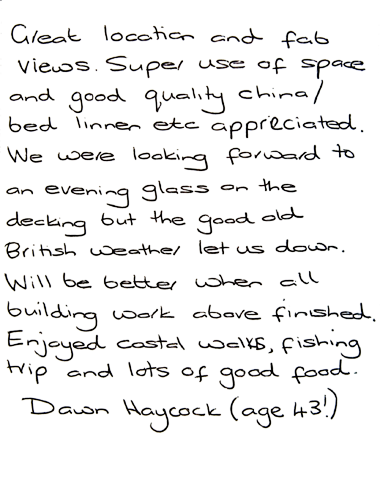 Great location and fab
views. Super use of space
and good quality china/
bed linnen etc appriciated.
We were looking forward to
an evening glass on the
decking but the good old
British weather let us down.
Will be better when all
building work above finished.
Enjoyed costal walks, fishing
trip and lots of good food.
Dawn Haycock (age 43!)